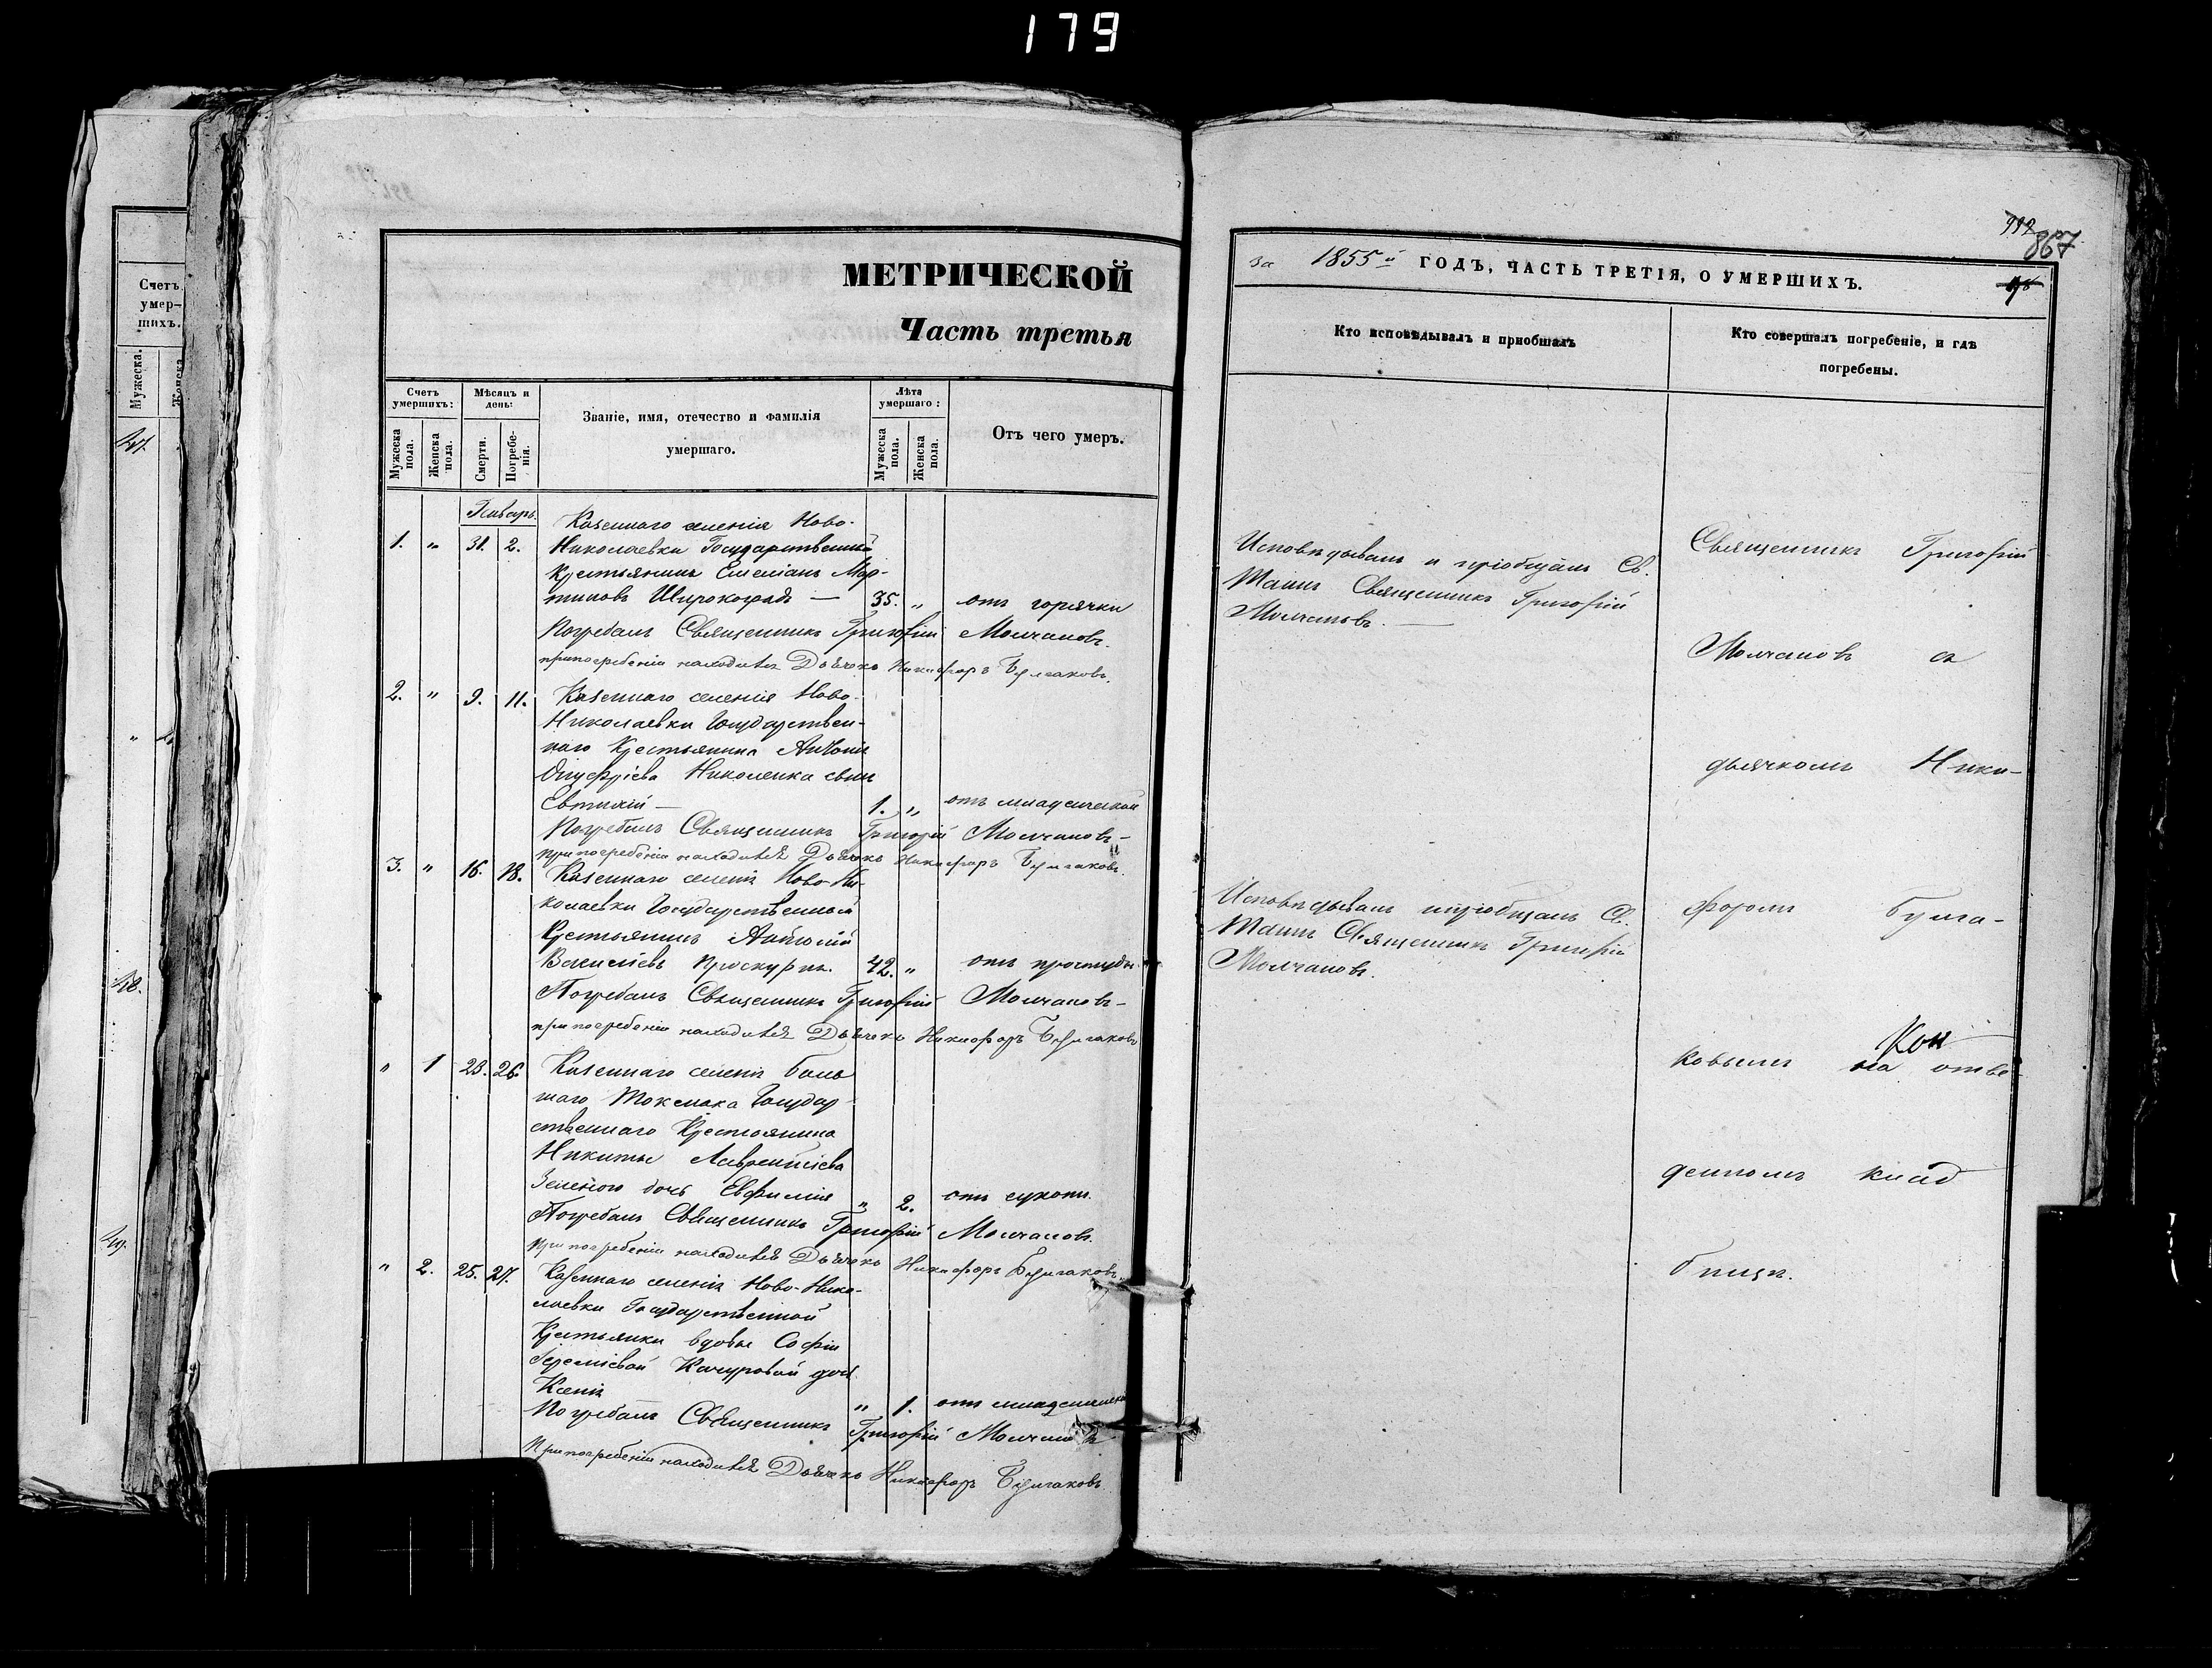 179
Счетъ
умер-
шихъ.
Мужеска.
Женска
47.
48.
49.
МЕТРИЧЕСКОЙ
Часть третья
Счетъ умершихъ:
Мѣсяцъ и день:
Званіе, имя, отечество и фамилія умершаго.
Лѣта умершаго:
Отъ чего умеръ.
Мужеска пола.
Женска пола.
Смерти.
Погребенія.
Мужеска пола.
Женска пола.
Январь.
Казеннаго селенія Ново-
1. " 31. 2. Николаевки Государственный
Крестьянинъ Емеліанъ Мар-
тиновъ Широкоградъ — 35. " отъ горячки
Погребалъ Священникъ Григорій Молчановъ.
при погребеніи находился Дьячокъ Никифоръ Булгаковъ.
2. " 9. 11. Казеннаго селенія Ново-
Николаевки Государствен-
наго Крестьянина Антонія
Онуфріева Николенка сынъ
Евтихій — 1. " отъ младенческой
Погребалъ Священникъ Григорій Молчановъ —
При погребеніи находился Дьячокъ Никифоръ Булгаковъ.
3. " 16. 18. Казеннаго селенія Ново-Ни-
колаевки Государственный
Крестьянинъ Антоній
Василіевъ Проскурня. 42. " отъ простуды.
Погребалъ Священникъ Григорій Молчановъ —
при погребеніи находился Дьячокъ Никифоръ Булгаковъ
" 1 23. 26. Казеннаго селенія боль
шаго Токмака Государ
ственнаго Крестьянина
Никиты Лаврентіева
Зеленого дочь Евфимія " 2. отъ сухоти.
Погребалъ Священникъ Григорій Молчановъ.
При погребеніи находился Дьячокъ Никифоръ Булгаковъ.
" 2. 25. 27. Казеннаго селенія Ново-Нико-
лаевки Государственной
Крестьянки вдовы Софіи
Іереміевой Качуровой дочь
Ксенія " 1. отъ младенческой
Погребалъ Священникъ Григорій Молчановъ
При погребеніи находился Дьячокъ Никифоръ Булгаковъ
992
867
за 1855й ГОДЪ, ЧАСТЬ ТРЕТІЯ, О УМЕРШИХЪ.
Кто исповѣдывалъ и приобщалъ
Кто совершалъ погребеніе, и гдѣ
погребены.
Исповѣдывалъ и пріобщалъ Св.
Таинъ Священникъ Григорій
Молчановъ. —
Исповѣдывалъ и пріобщалъ Св.
Таинъ Священникъ Григорій
Молчановъ.
Священникъ Григорій
Молчановъ съ
дьячкомъ Ники-
форомъ Булга-
Кон
ковымъ на отве
денномъ клад
бищѣ.